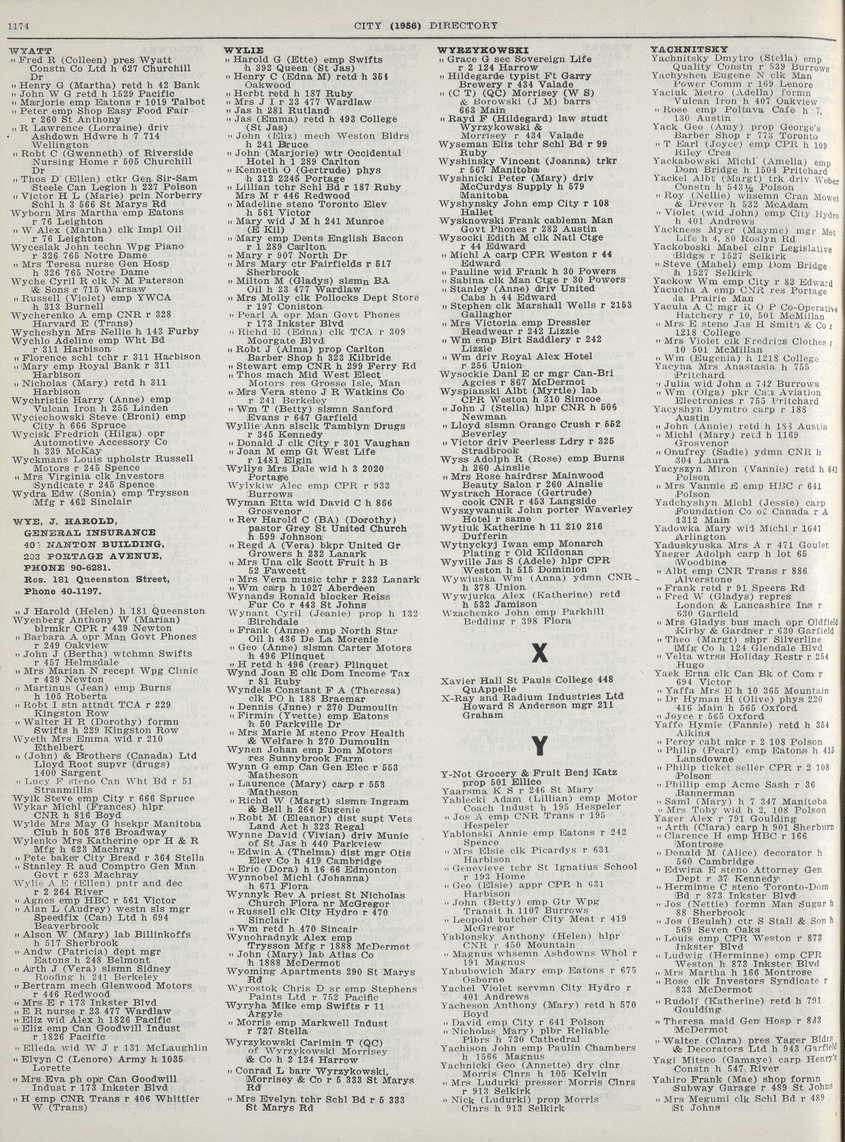 1174
CITY (1956) DIRECTORY
WYATT
" Fred R (Colleen) pres Wyatt
Constn Co Ltd h 627 Churchill
Dr
" Henry G (Martha) retd h 42 Bank
" John W G retd h 1529 Pacific
" Marjorie emp Eatons r 1019 Talbot
" Peter emp Shop Easy Food Fair
r 260 St Anthony
" R Lawrence (Lorraine) driv
Ashdown Hdwre h 7 714
Wellington
" Robt C (Gwenneth) of Riverside
Nursing Home r 505 Churchill
Dr
" Thos D (Ellen) ctkr Gen Sir-Sam
Steele Can Legion h 227 Polson
" Victor H L (Marie) prin Norberry
Schl h 3 566 St Marys Rd
Wyborn Mrs Martha emp Eatons
r 76 Leighton
" W Alex (Martha) clk Impl Oil
r 76 Leighton
Wyceslak John techn Wpg Piano
r 326 765 Notre Dame
" Mrs Teresa nurse Gen Hosp
h 326 765 Notre Dame
Wyche Cyril R clk N M Paterson
& Sons r 715 Warsaw
" Russell (Violet) emp YWCA
h 313 Burnell
Wycherenko A emp CNR r 328
Harvard E (Trans)
Wycheshyn Mrs Nellie h 143 Furby
Wychlo Adeline emp Wht Bd
r 311 Harbison
" Florence schl tchr r 311 Harbison
" Mary emp Royal Bank r 311
Harbison
" Nicholas (Mary) retd h 311
Harbison
Wychristie Harry (Anne) emp
Vulcan Iron h 255 Linden
Wyciechowski Steve (Broni) emp
City h 666 Spruce
Wycisk Fredrich (Hilga) opr
Automotive Accessory Co
h 339 McKay
Wyckmans Louis upholstr Russell
Motors r 245 Spence
" Mrs Virginia clk Investors
Syndicate r 245 Spence
Wydra Edw (Sonia) emp Trysson
Mfg r 462 Sinclair
WYE, J. HAROLD,
GENERAL INSURANCE
NANTON BUILDING,
PORTAGE AVENUE,
PHONE 90-6281.
Res. 181 Queenston Street,
Phone 40-1197.
" J Harold (Helen) h 181 Queenston
Wyenberg Anthony W (Marian)
blrmkr CPR r 439 Newton
" Barbara A opr Man Govt Phones
r 249 Oakview
" John J (Bertha) wtchmn Swifts
r 457 Helmsdale
" Mrs Marian N recept Wpg Clinic
r 439 Newton
" Martinus (Jean) emp Burns
h 105 Roberta
" Robt I stn attndt TCA r 229
Kingston Row
" Walter H R (Dorothy) formn
Swifts h 229 Kingston Row
Wyeth Mrs Emma wid r 210
Ethelbert
" (John) & Brothers (Canada) Ltd
Lloyd Root supvr (drugs)
1400 Sargent
" Lucy F steno Can Wht Bd r 51
Stranmillis
Wyik Steve emp City r 666 Spruce
Wykar Michl (Frances) hlpr
CNR h 816 Boyd
Wylde Mrs May G hsekpr Manitoba
Club h 505 376 Broadway
Wylenko Mrs Katherine opr H & R
Mfg h 623 Machray
" Pete baker City Bread r 364 Stella
" Stanley R aud Comptro Gen Man
Govt r 623 Machray
Wylie A E (Ellen) pntr and dec
r 2 264 River
" Agnes emp HBC r 561 Victor
" Alan L (Audrey) westn sls mgr
Speedfix (Can) Ltd h 694
Beaverbrook
" Alson W (Mary) lab Billinkoffs
h 517 Sherbrook
" Andw (Patricia) dept mgr
Eatons h 248 Belmont
" Arth J (Vera) slsmn Sidney
Roofing h 241 Berkeley
" Bertram mech Glenwood Motors
r 446 Redwood
" Mrs E r 173 Inkster Blvd
" E R nurse r 23 477 Wardlaw
" Eliz wid Alex h 1826 Pacific
" Eliz emp Can Goodwill Indust
r 1826 Pacific
" Elleda wid W J r 131 McLaughlin
" Elvyn C (Lenore) Army h 1035
Lorette
" Mrs Eva ph opr Can Goodwill
Indust r 173 Inkster Blvd
" H emp CNR Trans r 406 Whittier
W (Trans)
WYLIE
" Harold G (Ette) emp Swifts
h 392 Queen (St Jas)
" Henry C (Edna M) retd h 354
Oakwood
" Herbt retd h 187 Ruby
" Mrs J I r 23 477 Wardlaw
" Jas h 281 Rutland
" Jas (Emma) retd h 493 College
(St Jas)
" John (Eliz) mech Weston Bldrs
h 241 Bruce
" John (Marjorie) wtr Occidental
Hotel h 1 289 Carlton
" Kenneth O (Gertrude) phys
h 312 2245 Portage
" Lillian tchr Schl Bd r 187 Ruby
" Mrs M r 446 Redwood
" Madeline steno Toronto Elev
h 561 Victor
" Mary wid J M h 241 Munroe
(E Kil)
" Mary emp Dents English Bacon
r 1 289 Carlton
" Mary r 907 North Dr
" Mrs Mary ctr Fairfields r 517
Sherbrook
" Milton M (Gladys) slsmn BA
Oil h 23 477 Wardlaw
" Mrs Molly clk Pollocks Dept Store
r 197 Coniston
" Pearl A opr Man Govt Phones
r 173 Inkster Blvd
" Richd E (Edna) clk TCA r 309
Moorgate Blvd
" Robt J (Alma) prop Carlton
Barber Shop h 323 Kilbride
" Stewart emp CNR h 299 Ferry Rd
" Thos mach Mid West Elect
Motors res Grosse Isle, Man
" Mrs Vera steno J R Watkins Co
r 241 Berkeley
" Wm T (Betty) slsmn Sanford
Evans r 647 Garfield
Wyllie Ann slsclk Tamblyn Drugs
r 345 Kennedy
" Donald J clk City r 301 Vaughan
" Joan M emp Gt West Life
r 1481 Elgin
Wyllys Mrs Dale wid h 3 2020
Portage
Wylykiw Alec emp CPR r 933
Burrows
Wyman Etta wid David C h 866
Grosvenor
" Rev Harold C (BA) (Dorothy)
pastor Grey St United Church
h 599 Johnson
" Regd A (Vera) bkpr United Gr
Growers h 232 Lanark
" Mrs Una clk Scott Fruit h B
52 Fawcett
" Mrs Vera music tchr r 232 Lanark
" Wm carp h 1027 Aberdeen
Wynands Ronald blocker Reiss
Fur Co r 443 St Johns
Wynant Cyril (Jeanie) prop h 132
Birchdale
" Frank (Anne) emp North Star
Oil h 436 De La Morenie
" Geo (Anne) slsmn Carter Motors
h 496 Plinquet
" H retd h 496 (rear) Plinquet
Wynd Joan E clk Dom Income Tax
r 81 Ruby
Wyndels Constant F A (Theresa)
clk PO h 188 Braemar
" Dennis (June) r 270 Dumoulin
" Firmin (Yvette) emp Eatons
h 50 Parkview Dr
" Mrs Marie M steno Prov Health
& Welfare h 270 Dumoulin
Wynen Johan emp Dom Motors
res Sunnybrook Farm
Wynn G emp Can Gen Elec r 553
Matheson
" Laurence (Mary) carp r 553
Matheson
" Richd W (Margt) slsmn Ingram
& Bell h 264 Eugenie
" Robt M (Eleanor) dist supt Vets
Land Act h 323 Regal
Wynne David (Vivian) driv Munic
of St Jas h 440 Parkview
" Edwin A (Thelma) dist mgr Otis
Elev Co h 419 Cambridge
" Eric (Dora) h 16 66 Edmonton
Wynnobel Michl (Johanna)
h 671 Flora
Wynnyk Rev A priest St Nicholas
Church Flora nr McGregor
" Russell clk City Hydro r 470
Sinclair
" Wm retd h 470 Sincair
Wynohradnyk Alex emp
Trysson Mfg r 1888 McDermot
" John (Mary) lab Atlas Co
h 1888 McDermot
Wyoming Apartments 290 St Marys
Rd
Wyrostok Chris D sr emp Stephens
Paints Ltd r 752 Pacific
Wyryha Mike emp Swifts r 11
Argyle
" Morris emp Markwell Indust
r 727 Stella
Wyrzykowski Carimin T (QC)
of Wyrzykowski Morrisey
& Co h 2 124 Harrow
" Conrad L barr Wyrzykowski,
Morrisey & Co r 5 333 St Marys
Rd
" Mrs Evelyn tchr Schl Bd r 5 333
St Marys Rd
WYRZYKOWSKI
" Grace G sec Sovereign Life
r 2 124 Harrow
" Hildegarde typist Ft Garry
Brewery r 434 Valade
" (C T) (QC) Morrisey (W S)
& Borowski (J M) barrs
663 Main
" Rayd F (Hildegard) law studt
Wyrzykowski &
Morrisey r 434 Valade
Wyseman Eliz tchr Schl Bd r 99
Ruby
Wyshinsky Vincent (Joanna) trkr
r 567 Manitoba
Wyshnicki Peter (Mary) driv
McCurdys Supply h 579
Manitoba
Wyshynsky John emp City r 108
Hallet
Wysknowski Frank cablemn Man
Govt Phones r 282 Austin
Wysocki Edith M clk Natl Ctge
r 44 Edward
" Michl A carp CPR Weston r 44
Edward
" Pauline wid Frank h 30 Powers
" Sabina clk Man Ctge r 30 Powers
" Stanley (Anne) driv United
Cabs h 44 Edward
" Stephen clk Marshall Wells r 2153
Gallagher
" Mrs Victoria emp Dressler
Headwear r 242 Lizzie
" Wm emp Birt Saddlery r 242
Lizzie
" Wm driv Royal Alex Hotel
r 256 Union
Wysockie Danl E cr mgr Can-Bri
Agcies r 867 McDermot
Wyspianski Albt (Myrtle) lab
CPR Weston h 310 Simcoe
" John J (Stella) hlpr CNR h 506
Newman
" Lloyd slsmn Orange Crush r 552
Beverley
" Victor driv Peerless Ldry r 325
Stradbrook
Wyss Adolph R (Rose) emp Burns
h 260 Ainslie
" Mrs Rose hairdrsr Mainwood
Beauty Salon r 260 Ainslie
Wystrach Horace (Gertrude)
cook CNR r 453 Langside
Wyszywanuik John porter Waverley
Hotel r same
Wytiuk Katherine h 11 210 216
Dufferin
Wytnyckyj Iwan emp Monarch
Plating r Old Kildonan
Wyville Jas S (Adele) hlpr CPR
Weston h 515 Dominion
Wywiuska Wm (Anna) ydmn CNR
h 378 Union
Wywjurka Alex (Katherine) retd
h 532 Jamison
Wzachenko John emp Parkhill
Bedding r 398 Flora
X
Xavier Hall St Pauls College 448
QuAppelle
X-Ray and Radium Industries Ltd
Howard S Anderson mgr 211
Graham
Y
Y-Not Grocery & Fruit Benj Katz
prop 501 Ellice
Yaarsma K S r 246 St Mary
Yablecki Adam (Lillian) emp Motor
Coach Indust h 195 Hespeler
" Jos A emp CNR Trans r 195
Hespeler
Yablonski Annie emp Eatons r 242
Spence
" Mrs Elsie clk Picardys r 631
Harbison
" Genevieve tchr St Ignatius School
r 193 Home
" Geo (Elsie) appr CPR h 631
Harbison
" John (Betty) emp Gtr Wpg
Transit h 1107 Burrows
" Leopold butcher City Meat r 419
McGregor
Yablonsky Anthony (Helen) hlpr
CNR r 450 Mountain
" Magnus whsemn Ashdowns Whol r
191 Magnus
Yabubowich Mary emp Eatons r 675
Osborne
Yachel Violet servmn City Hydro r
401 Andrews
Yacheson Anthony (Mary) retd h 570
Boyd
" David emp City r 641 Polson
" Nicholas (Mary) plbr Reliable
Plbrs h 730 Cathedral
Yachison John emp Paulin Chambers
h 1566 Magnus
Yachnicki Geo (Annette) dry clnr
Morris Clnrs h 105 Kelvin
" Mrs Ludurki presser Morris Clnrs
r 913 Selkirk
" Nick (Ludurki) prop Morris
Clnrs h 913 Selkirk
YACHNITSKY
Yachnitsky Dmytro (Stella) emp
Quality Constn r 539 Burrows
Yachyshen Eugene N clk Man
Power Comm r 169 Lenore
Yaciuk Metro (Adella) formn
Vulcan Iron h 407 Oakview
" Rose emp Poltava Cafe h 7,
130 Austin
Yack Geo (Amy) prop George's
Barber Shop r 773 Toronto
" T Earl (Joyce) emp CPR h 109
Riley Cres
Yackabowski Michl (Amelia) emp
Dom Bridge h 1504 Pritchard
Yackel Albt (Margt) trk driv Weber
Constn h 543½ Polson
" Roy (Nellie) whsemn Cran Mowet
& Drever h 532 McAdam
" Violet (wid John) emp City Hydro
h 401 Andrews
Yackness Myer (Mayme) mgr Met
Life h 4, 80 Roslyn Rd
Yackoboski Mabel clnr Legislative
Bldgs r 1527 Selkirk
" Steve (Mabel) emp Dom Bridge
h 1527 Selkirk
Yackow Wm emp City r 82 Edward
Yacucha A emp CNR res Portage
la Prairie Man
Yacula A C mgr R O P Co-Operative
Hatchery r 10, 501 McMillan
" Mrs E steno Jas H Smith & Co r
1218 College
" Mrs Violet clk Fredrics Clothes r
10 501 McMillan
" Wm (Eugenia) h 1218 College
Yacyna Mrs Anastasia h 755
Pritchard
" Julia wid John n 742 Burrows
" Wm (Olga) pkr Can Aviation
Electronics r 755 Pritchard
Yacyshyn Dymtro carp r 188
Austin
" John (Annie) retd h 183 Austin
" Michl (Mary) retd h 1169
Grosvenor
" Onufrey (Sadie) ydmn CNR h
304 Laura
Yacyszyn Miron (Vannie) retd h 641
Polson
" Mrs Vannie E emp HBC r 641
Polson
Yadchyshyn Michl (Jessie) carp
Foundation Co of Canada r A
1312 Main
Yadowka Mary wid Michl r 1641
Arlington
Yaduskyuska Mrs A r 471 Goulet
Yaeger Adolph carp h lot 65
Woodbine
" Albt emp CNR Trans r 886
Alverstone
" Frank retd r 91 Speers Rd
" Fred W (Gladys) repres
London & Lancashire Ins r
630 Garfield
" Mrs Gladys bus mach opr Oldfield
Kirby & Gardner r 630 Garfield
" Theo (Margt) shpr Silverline
Mfg Co h 124 Glendale Blvd
" Velta wtrss Holiday Restr r 254
Hugo
Yaek Erna clk Can Bk of Com r
694 Victor
" Yaffa Mrs E h 10 365 Mountain
" Dr Hyman H (Olive) phys 220
416 Main h 565 Oxford
" Joyce r 565 Oxford
Yaffe Hymie (Fannie) retd h 354
Aikins
" Percy cabt mkr r 2 108 Polson
" Philip (Pearl) emp Eatons h 415
Lansdowne
" Philip ticket seller CPR r 2 108
Polson
" Phillip emp Acme Sash r 36
Bannerman
" Saml (Mary) h 7 247 Manitoba
" Mrs Toby wid h 2, 108 Polson
Yager Alex r 791 Goulding
" Arth (Clara) carp h 901 Sherburn
" Clarence H emp HBC r 166
Montrose
" Donald M (Alice) decorator h
560 Cambridge
" Edwina E steno Attorney Gen
Dept r 37 Kennedy
" Herminne C steno Toronto-Dom
Bd r 873 Inkster Blvd
" Jos (Nettie) formn Man Sugar h
88 Sherbrook
" Jos (Beulah) ctr S Stall & Son h
569 Seven Oaks
" Louis emp CPR Weston r 873
Inkster Blvd
" Ludwig (Herminne) emp CPR
Weston h 873 Inkster Blvd
" Mrs Martha h 166 Montrose
" Rose clk Investors Syndicate r
833 McDermot
" Rudolf (Katherine) retd h 791
Goulding
" Theresa maid Gen Hosp r 833
McDermot
" Walter (Clara) pres Yager Bldrs
& Decorators Ltd h 943 Garfield
Yagi Mitsco (Gamaye) carp Henry's
Constn h 547 River
Yahiro Frank (Mae) shop formn
Subway Garage r 489 St Johns
" Mrs Megumi clk Schl Bd r 489
St Johns